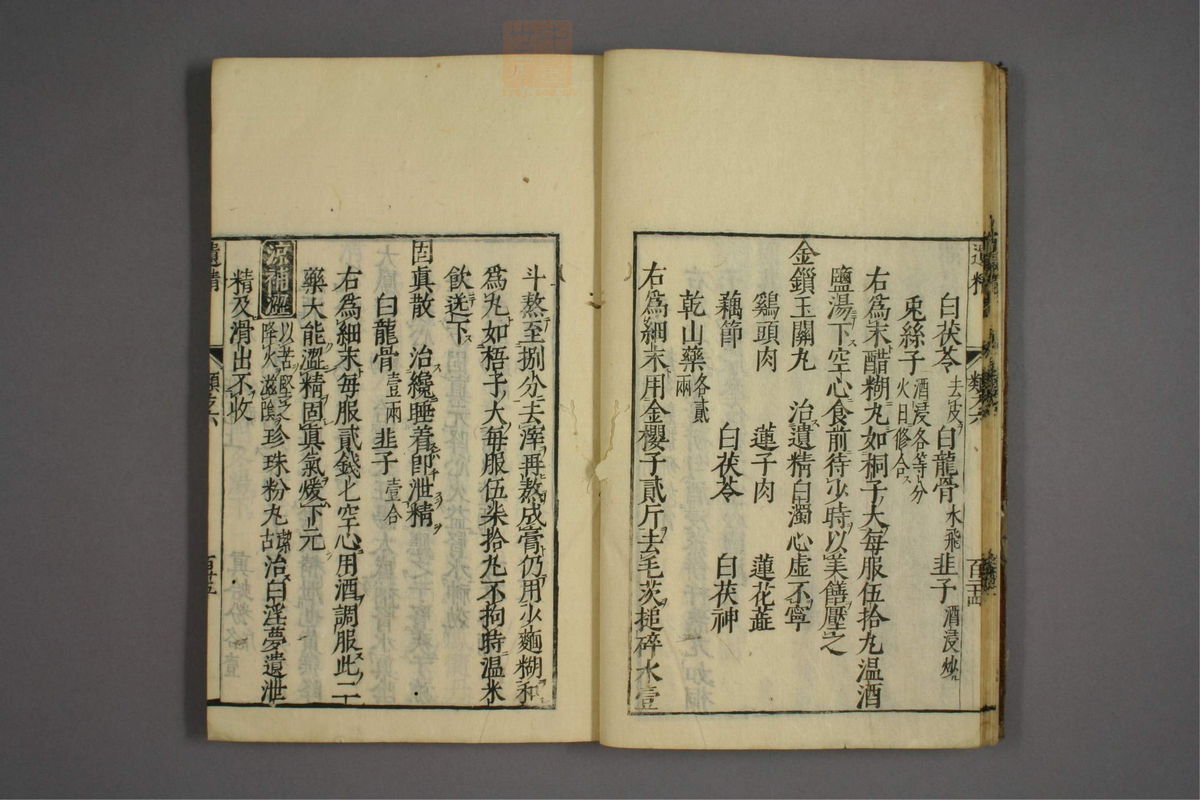 遺精
類之六
百五十四
白茯苓去皮 白龍骨水飛 韭子酒浸炒
兎絲子酒浸各等分火日修合
右爲末醋糊丸如桐子大每服伍拾丸温酒
鹽湯下空心食前待少時以美饍壓之
金鎖玉關丸 治遺精白濁心虚不寧
鷄頭肉 蓮子肉 蓮花蕋
藕節 白茯苓 白茯神
乾山藥各貳兩
右爲細末用金櫻子貳斤去毛茨搥碎水壹
斗熬至捌分去滓再熬成膏仍用少麵糊和
爲丸如梧子大每服伍柒拾丸不拘時温米
飲送下
固真散 治纔睡着即泄精
白龍骨壹兩 韭子壹合
右爲細末每服貳錢匕空心用酒調服此二
藥大能澀精固真氣煖下元
凉補澀 以苦堅之降火滋陰 珍珠粉丸 治白淫夢遺泄
精及滑出不收
遺精
類之六